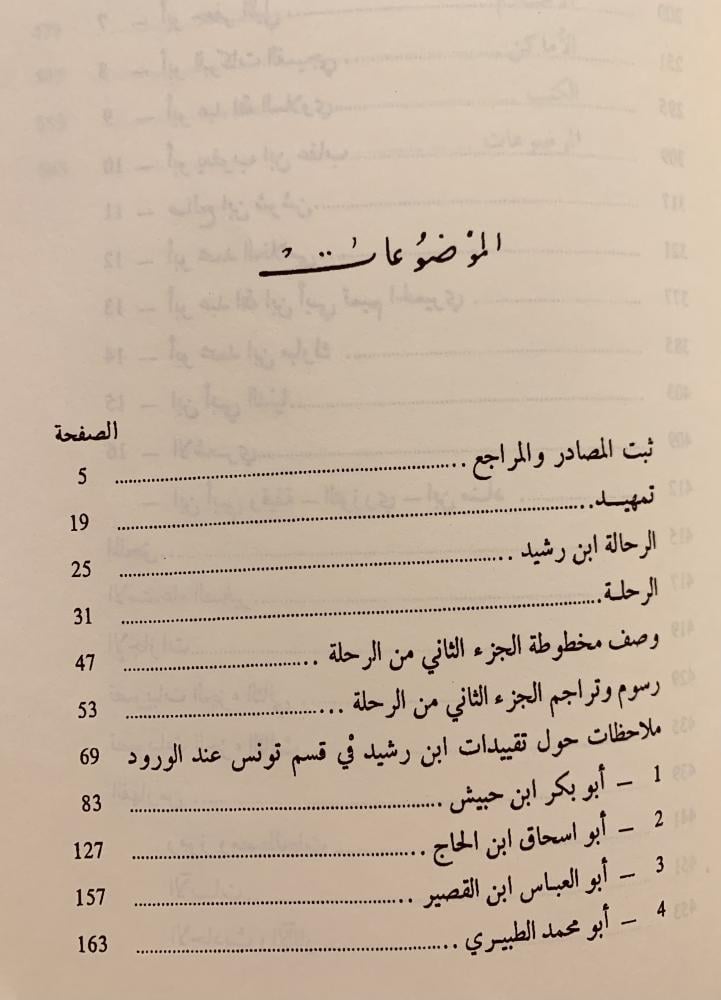 الموْضوُعات
الصفحة
ثبت المصادر والمراجع .......... 5
تمهيــد .......... 19
الرحالة ابن رشيد .......... 25
الرحلـة .......... 31
وصف مخطوطة الجزء الثاني من الرحلة .......... 47
رسوم وتراجم الجزء الثاني من الرحلة .......... 53
ملاحظات حول تقييدات ابن رشيد في قسم تونس عند الورود 69
1 – أبو بكر ابن حبيش .......... 83
2 – أبو اسحاق ابن الحاج .......... 127
3 – أبو العباس ابن القصير .......... 157
4 – أبو محمد الطبيـري .......... 163